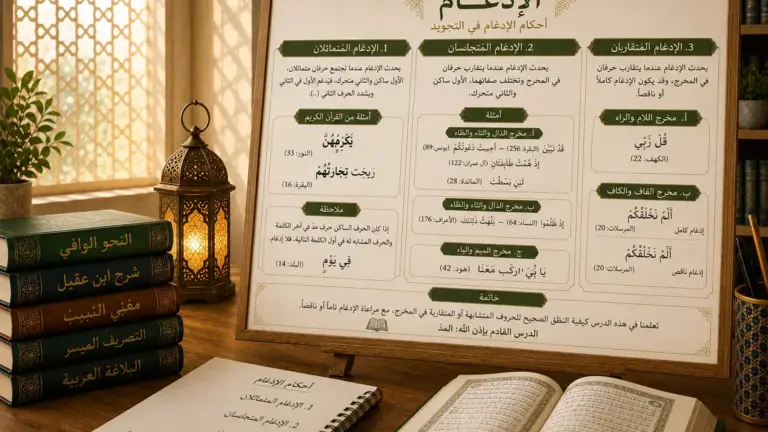 الإدغام
أحكام الإدغام في التجويد
1. الإدغام المُتماثلان
يحدث الإدغام عندما تجتمع حرفان متماثلان،
الأول ساكن والثاني متحرك، فيُدغم الأول في الثاني
ويشدد الحرف الثاني (ــّ).
أمثلة من القرآن الكريم
(النور: 33)
رَبِحَت تِجَارَتُهُمْ
(البقرة: 16)
ملاحظة
إذا كان الحرف الساكن حرف مدّ في آخر الكلمة
والحرف المشابه له في أول الكلمة التالية، فلا إدغام.
فِي يَوْمٍ
(البلد: 14)
2. الإدغام المُتجانسان
يحدث الإدغام عندما يتقارب حرفان
في المخرج وتختلف صفاتهما، الأول ساكن
والثاني متحرك.
أمثلة
أ. مخرج الذال والثاء والظاء
(البقرة: 256) – أُجِيبَت دَعْوَتُكُمْ (يونس: 89)
إِذْ هَمَّتْ طَائِفَتَانِ (آل عمران: 122)
بَسَطْتَ (المائدة: 28)
ب. مخرج الذال والثاء والظاء
إِذ ظَلَمُوا (النساء: 64) – (الأعراف: 176)
ج. مخرج الميم والباء
ارْكَب مَعَنَا (هود: 42)
3. الإدغام المُتقاربان
يحدث الإدغام عندما يتقارب حرفان
في المخرج، وقد يكون الإدغام كاملاً
أو ناقصاً.
أ. مخرج اللام والراء
قُل رَّبِّي
(الكهف: 22)
ب. مخرج القاف والكاف
أَلَمْ نَخْلُقكُمْ
إدغام كامل (المرسلات: 20)
أَلَمْ نَخْلُقكُمْ
إدغام ناقص (المرسلات: 20)
خاتمة
تعلمنا في هذه الدرس كيفية النطق الصحيح للحروف المتشابهة أو المتقاربة في المخرج، مع مراعاة الإدغام تاماً أو ناقصاً.
الدرس القادم بإذن الله: المدّ
النحو الوافي
شرح ابن عقيل
مغني
التصريف الميسر
البلاغة العربية
أحكام الإدغام
1. الإدغام المتماثلان
2. الإدغام المتجانسان